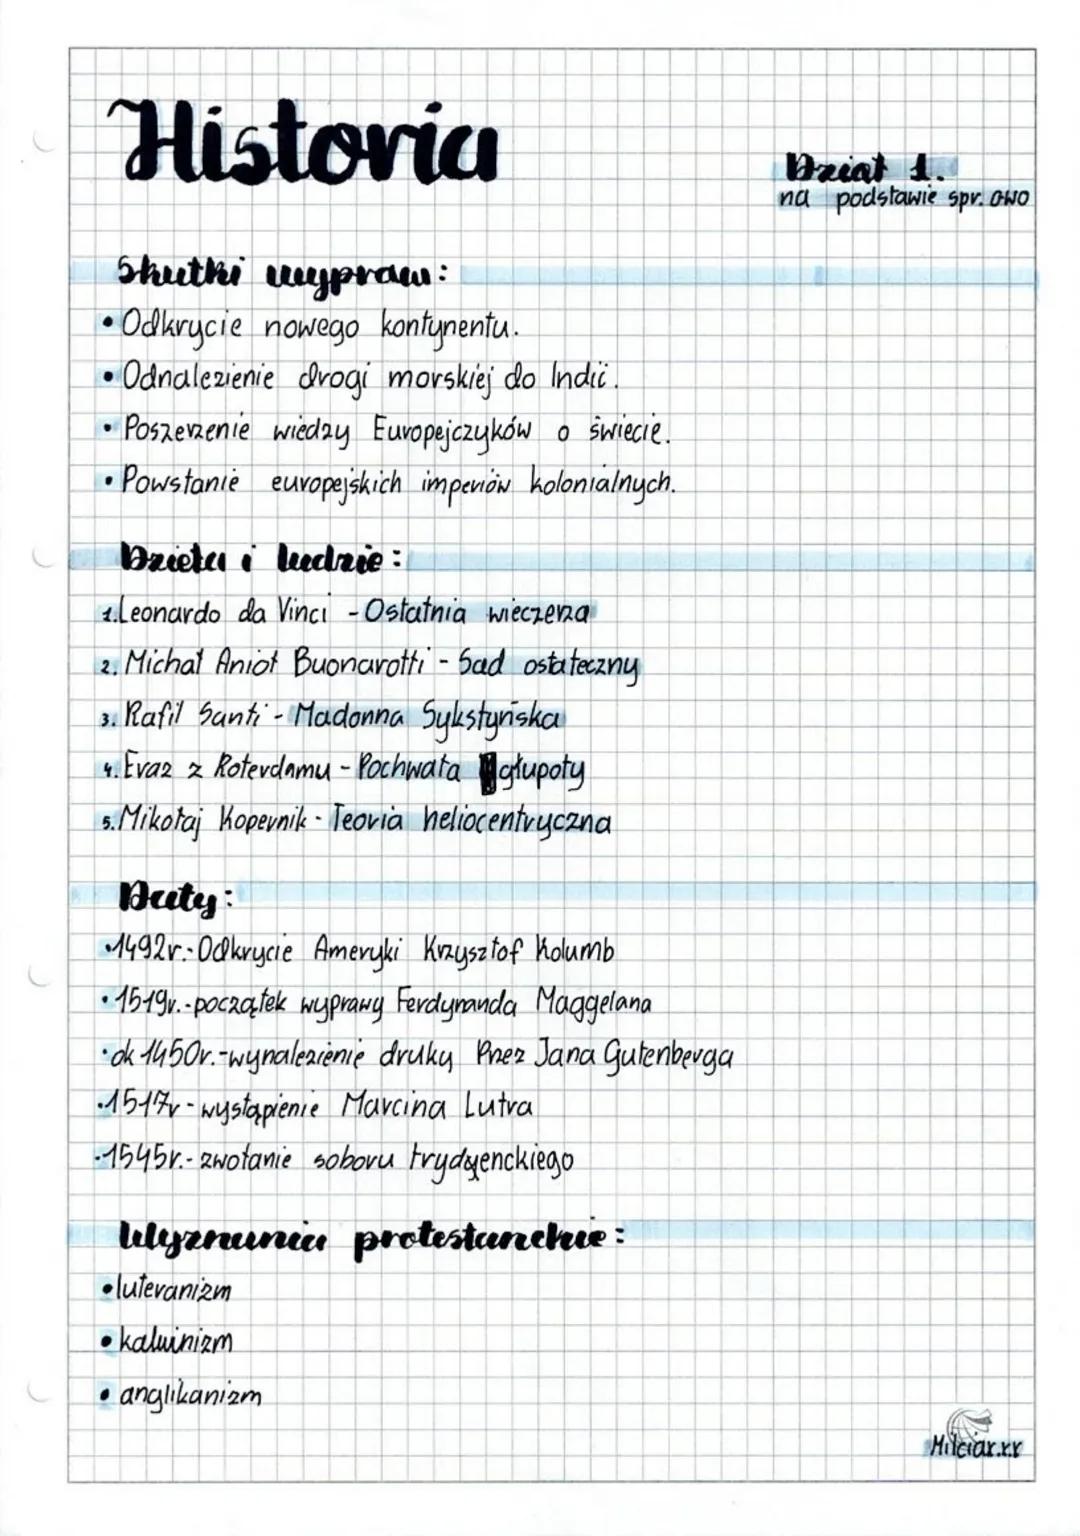 Historia
Dział 1.
na podstawie spr. GWO
Skutki wypraw:
• Odkrycie nowego kontynentu.
• Odnalezienie drogi morskiej do Indii.
• Poszerzenie wiedzy Europejczyków o świecie.
• Powstanie europejskich imperiów kolonialnych.
Dzieła i ludzie:
1. Leonardo da Vinci - Ostatnia wieczerza
2. Michał Anioł Buonarotti - Sad ostateczny
3. Rafil Santi - Madonna Sykstyńska
4. Eraz z Roterdamu - Pochwała głupoty
5. Mikołaj Kopernik - Teoria heliocentryczna
Daty:
• 1492r. - Odkrycie Ameryki Krzysztof Kolumb
• 1519r. - początek wyprawy Ferdynanda Maggelana
• ok 1450r. - wynalezienie druku Przez Jana Gutenberga
• 1517r - wystąpienie Marcina Lutra
• 1545r. - zwołanie soboru trydenckiego
Wyznania protestanckie:
• luteranizm
• kalwinizm
• anglikanizm
Milciax.xx